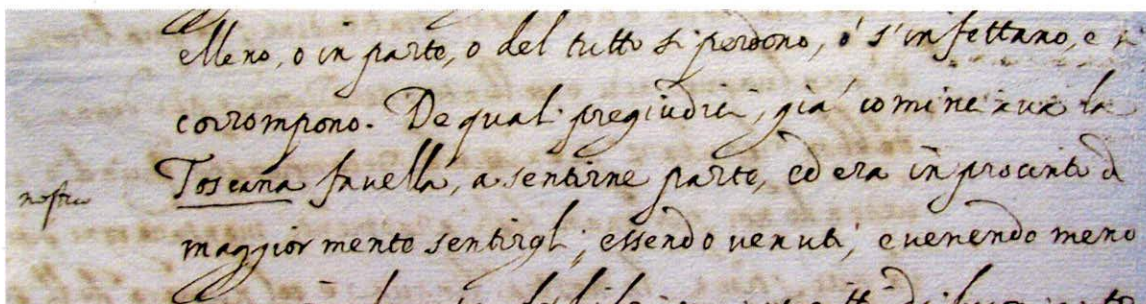 elleno, o in parte, o del tutto si perdono, ò s'infettano, e
corrompono. De quali pregiudici, già cominciava la
nostra
Toscana favella, a sentirne parte, ed era in procinto di
maggiormente sentirgli; essendo venuti, e venendo meno